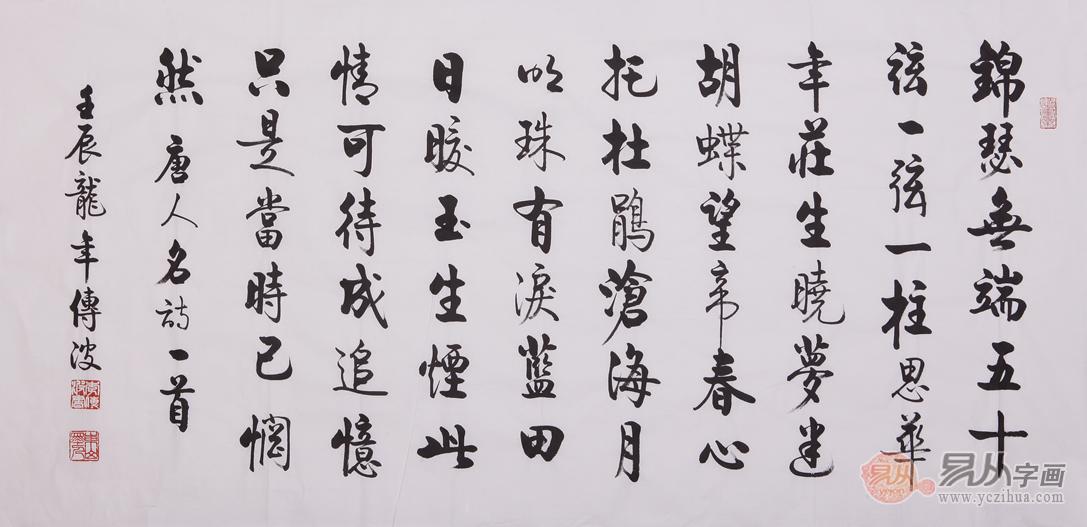 錦瑟無端五十
弦一弦一柱思華
年莊生曉夢迷
胡蝶望帝春心
托杜鵑滄海月
明珠有淚藍田
日暖玉生煙此
情可待成追憶
只是當時已惘
然 唐人名詩一首
壬辰龍年傳波
易从
易从字画
www.yczihua.com